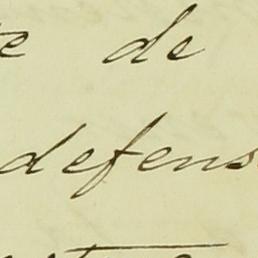 e de
defens